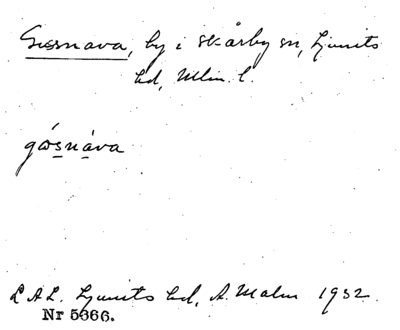 Gussnava, by i Skårby sn, Ljunits
hd, Mlm. l.
gósnáva
L A L. Ljunits hd, A. Malm 1932.
Nr 5666.